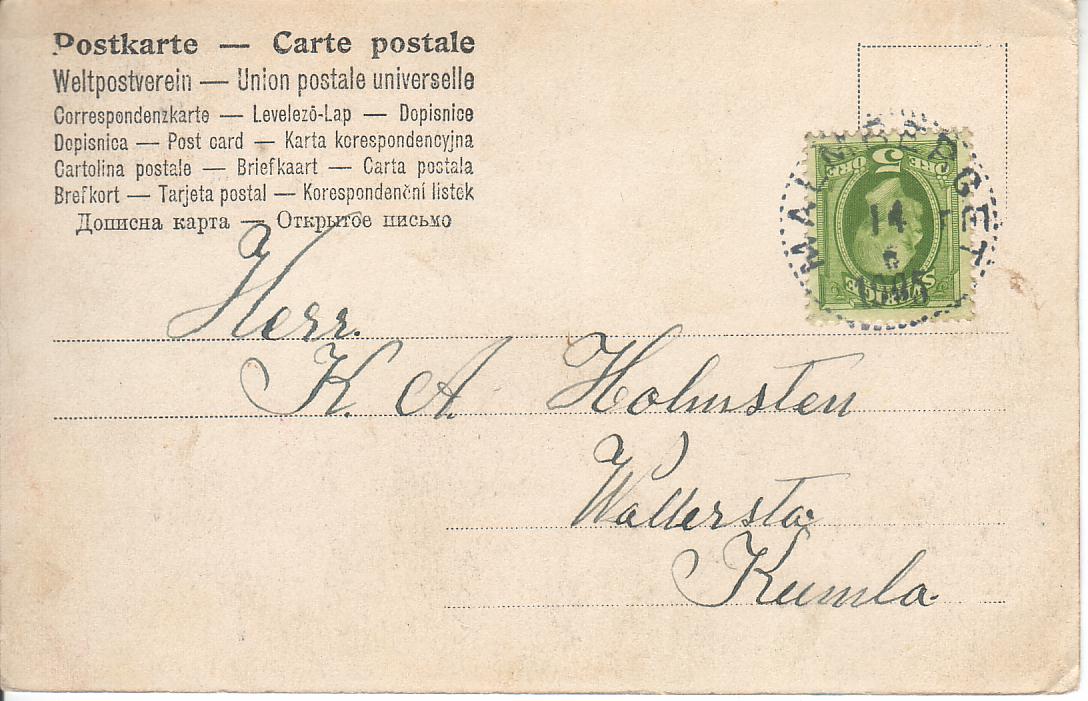 Postkarte — Carte postale
Weltpostverein — Union postale universelle
Correspondenzkarte — Levelező-Lap — Dopisnice
Dopisnica — Post card — Karta korespondencyjna
Cartolina postale — Briefkaart — Carta postala
Brefkort — Tarjeta postal — Korespondenční lístek
Дописна карта — Открытое письмо
MALMBERGET
14
6
1905
5 ÖRE
SVERIGE
Herr.
K. A. Holmsten
Wallersta
Kumla.